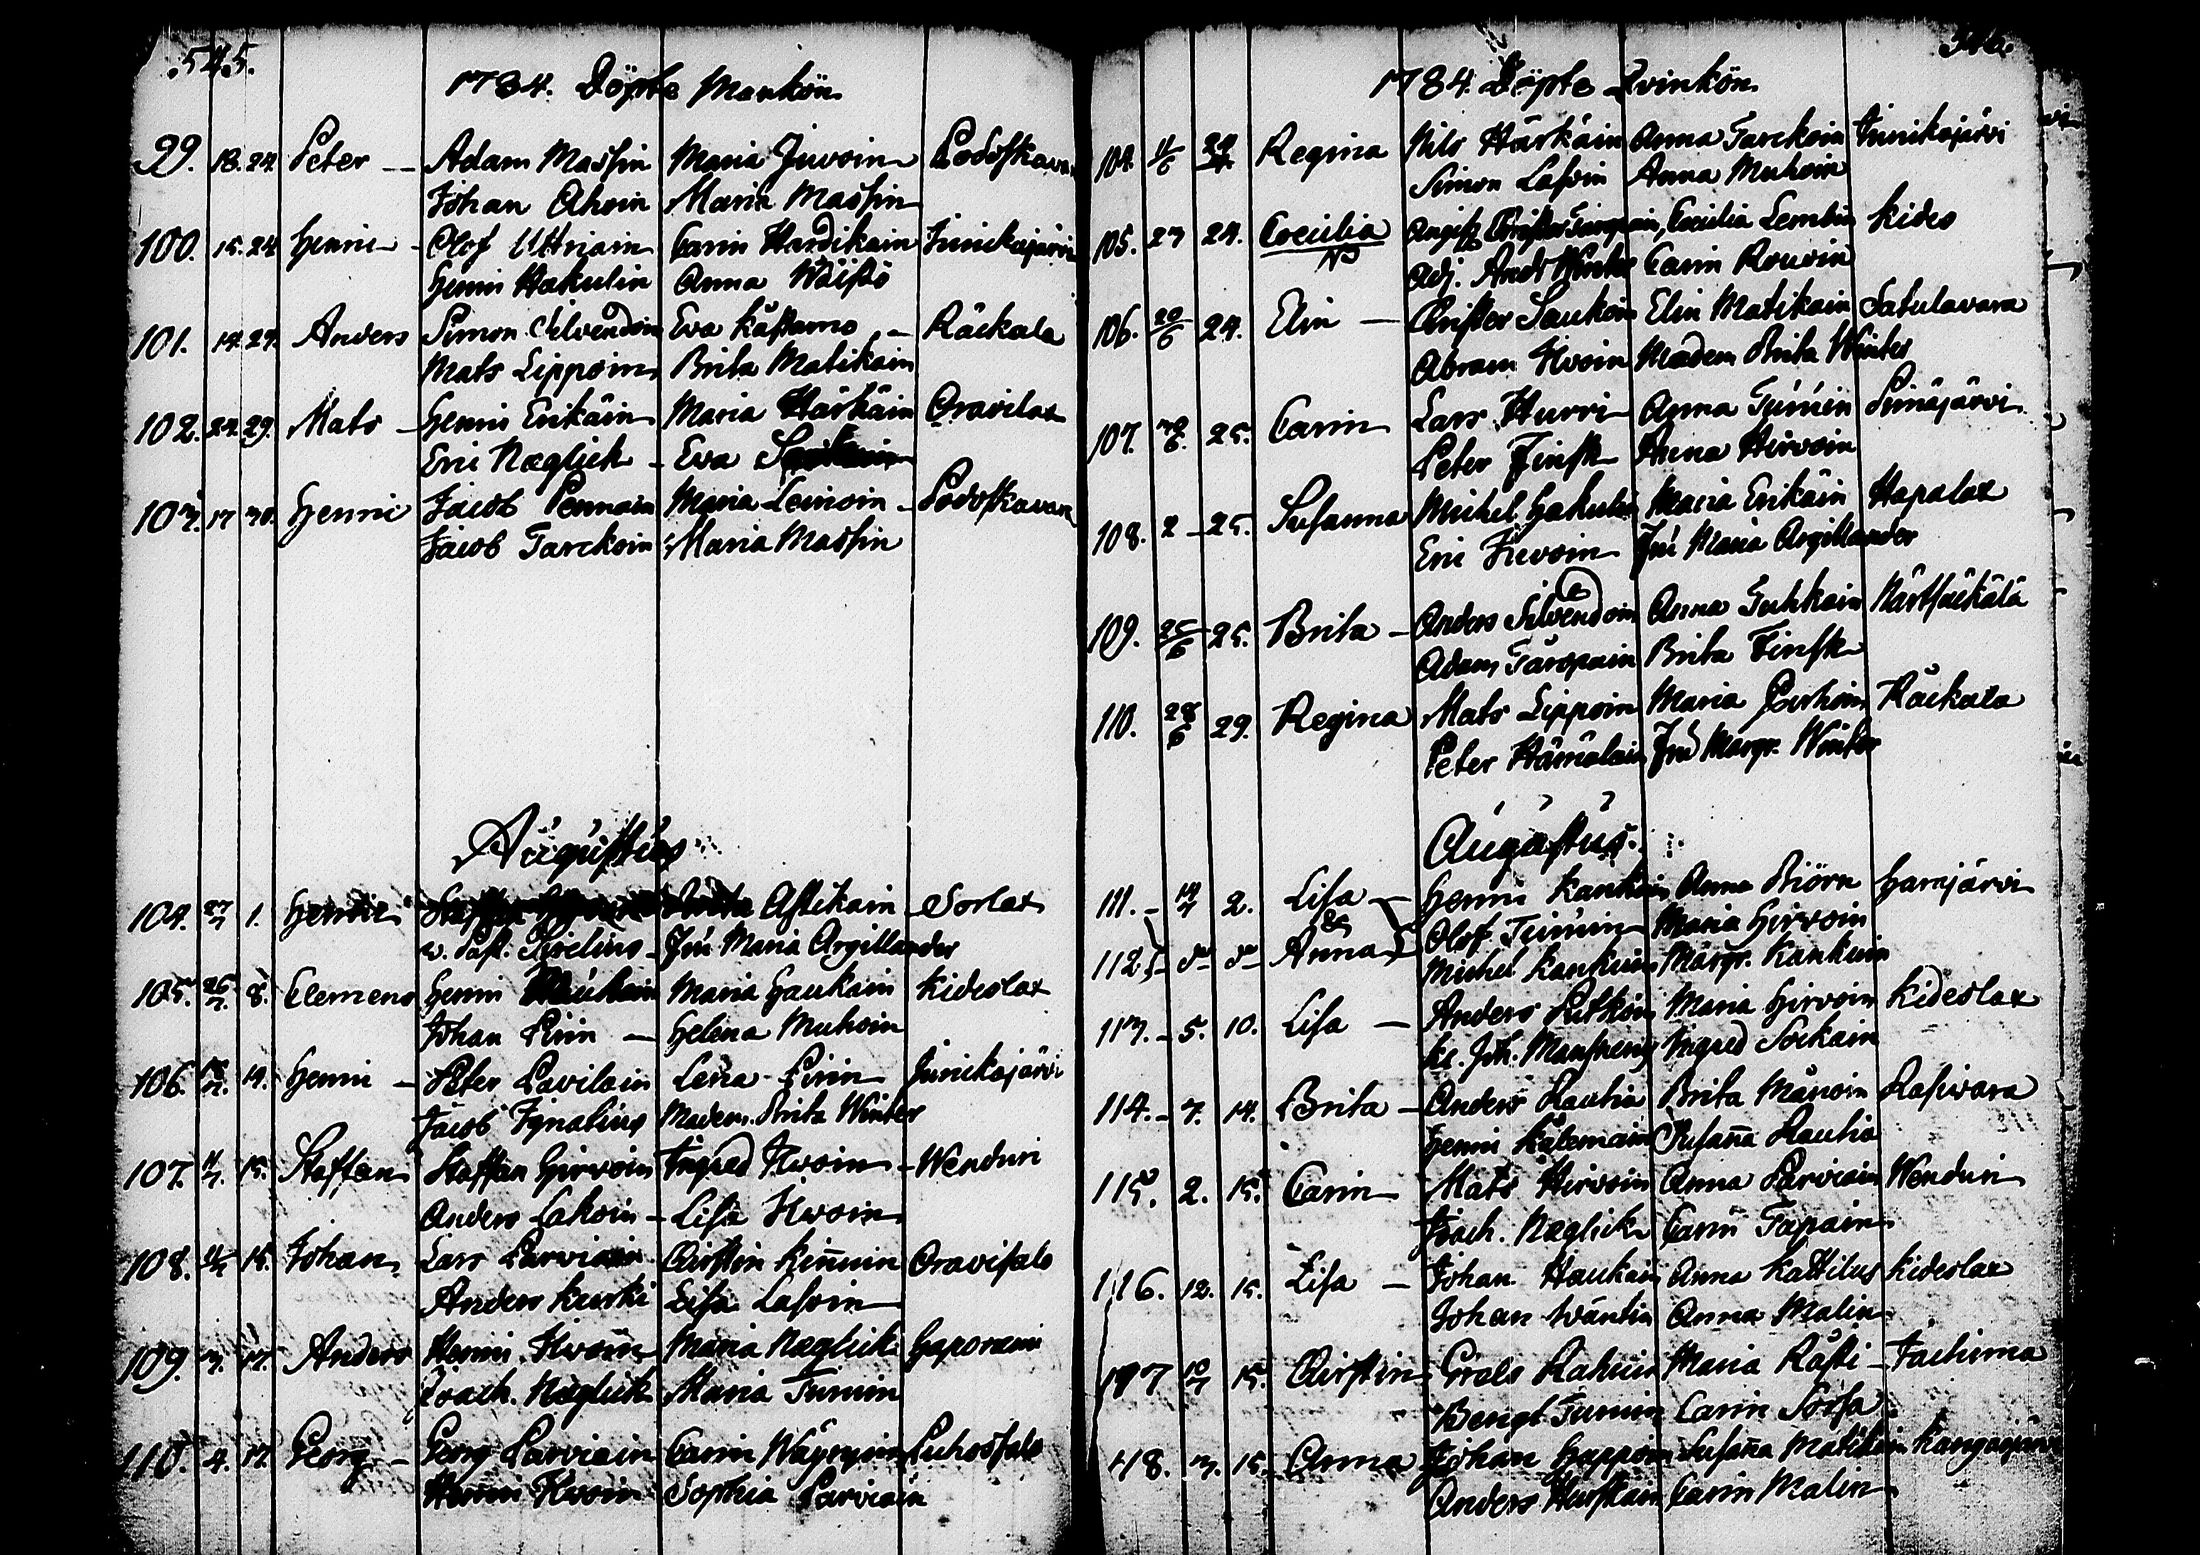 545.
1784. Döpte Mankön
99. 18. 24. Peter — Adam Massin Maria Juvoin Podoskavar
Johan Ahoin Maria Massin
100. 15. 24. Henric Olof Uttriain Carin Hardikain Juurikajärvi
Henric Hakulin Anna Wäisö
101. 14. 24. Anders Simon Silvendoin Eva Kåstamo — Räckälä
Mats Lippoin Brita Matikain
102. 24. 29. Mats — Henric Erikäin Maria Härkäin Oravilax
Eric Næglick — Eva
103. 17 30. Henric Jacob Pennain Maria Leinoin — Podoskavar
Jacob Tarckoin Maria Massin
Augustus
104. 27/7 1. Henric Astikain Sorlax
v. Past. Jfru Maria Argillander
105. 26/7. 8. Clemens Henric Maria Haukain Kideslax
Johan Pirin — Helena Muhoin
106. 14. Henric — Peter Pavilain Lena Pirin Juurikajärvi
Jacob Ignatius Madem. Brita Winter
107. 15. Staffan Staffan Hirvoin Ingred Hvoin — Wenduri
Anders Lahoin — Lisa Hvoin
108. 15. Johan Lars Parviain Christin Kinnuin Oravisalo
Anders Kurki Lisa Lasoin
109. 3. 17. Anders Henric Hvoin Maria Næglick
Joach. Næglick Maria Turuin
110. 4. 17. Georg — Georg Parviain Carin Wäyryin Puhossalo
Henric Hvoin Sophia Parviain
546.
1784. Döpte Qvinkön
104. 11/6 24. Regina Nils Härkäin Anna Tarckoin Juurikajärvi
Simon Lasoin Anna Muhoin
105. 23 24. Cecilia Cecilia Lembin Kides
Adj. And: Winter Carin Rouvin
106. 20/6 24. Elin — Christer Saukoin Elin Matikain Satulavara
Abram Hvoin Madem Brita Winter
107. 25. Carin Lars Hurri Anna Turuin Suurijärvi
Peter Finsk Anna Hirvoin
108. 2 — 25. Susanna Michel Hakulin Maria Erikäin Hapalax
Eric Hvoin Jfru Maria Argillander
109. 25/6 25. Brita — Anders Silvendoin Anna Tuhkain Närsäckälä
Adam Taropain Brita Finsk
110. 28/6 29. Regina Mats Lippoin Maria Räckälä
Peter Hämäläin Jfru Margr. Winter
Augustus
111. — 2. Lisa — Henric Kankuin Anna Biörn Harajärvi
& Olof Turuin Maria Hirvoin
112 Anna Michel Kankuin Margr. Kankuin
113. — 5. 10. Lisa — Anders Pitkoin Maria Hirvoin Kideslax
Kl. Joh. Ingred Sockain
114. — 7. 14. Brita — Anders Rautia Brita Månoin Rasivara
Henric Kålemain Susanna Rautia
115. 2. 15. Carin Mats Hirvoin Anna Parviain Wenduri
Joach. Næglick Carin Tapain
116. 12. 15. Lisa — Johan Haukain Anna Kattilus Kideslax
Johan Wäntin Anna Malin
117 15. Christin Grels Rahuin Maria Rästi —
Bengt Turuin Carin Sorsa
118. 3. 15. Anna Johan Happoin Susanna Matikain Kangasjärvi
Anders Hurskain Carin Malin